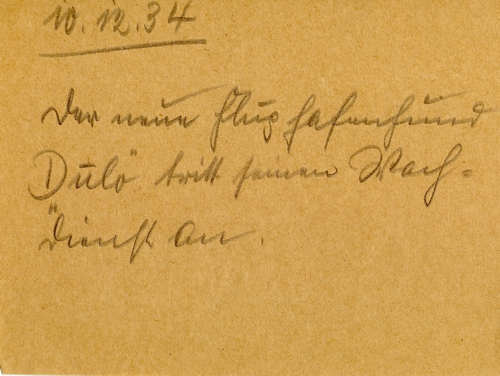 10.12.34
Der neue Flughafenhund
Dulö tritt seinen Wach=
dienst an.